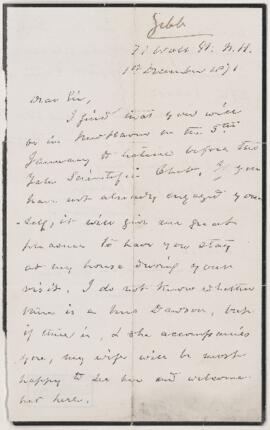 Gibb
77 Wall St. N. H.
1st December 1871
Dear Sir,
I find that you will
be in New Haven on the 5th
January to lecture before the
Yale Scientific Club. If you
have not already engaged your-
self, it will give me great
pleasure to have you stay
at my house during your
visit. I do not know whether
there is a Mrs Dawson, but
if there is, & she accompanies
you, my wife will be most
happy to see her and welcome
her here.